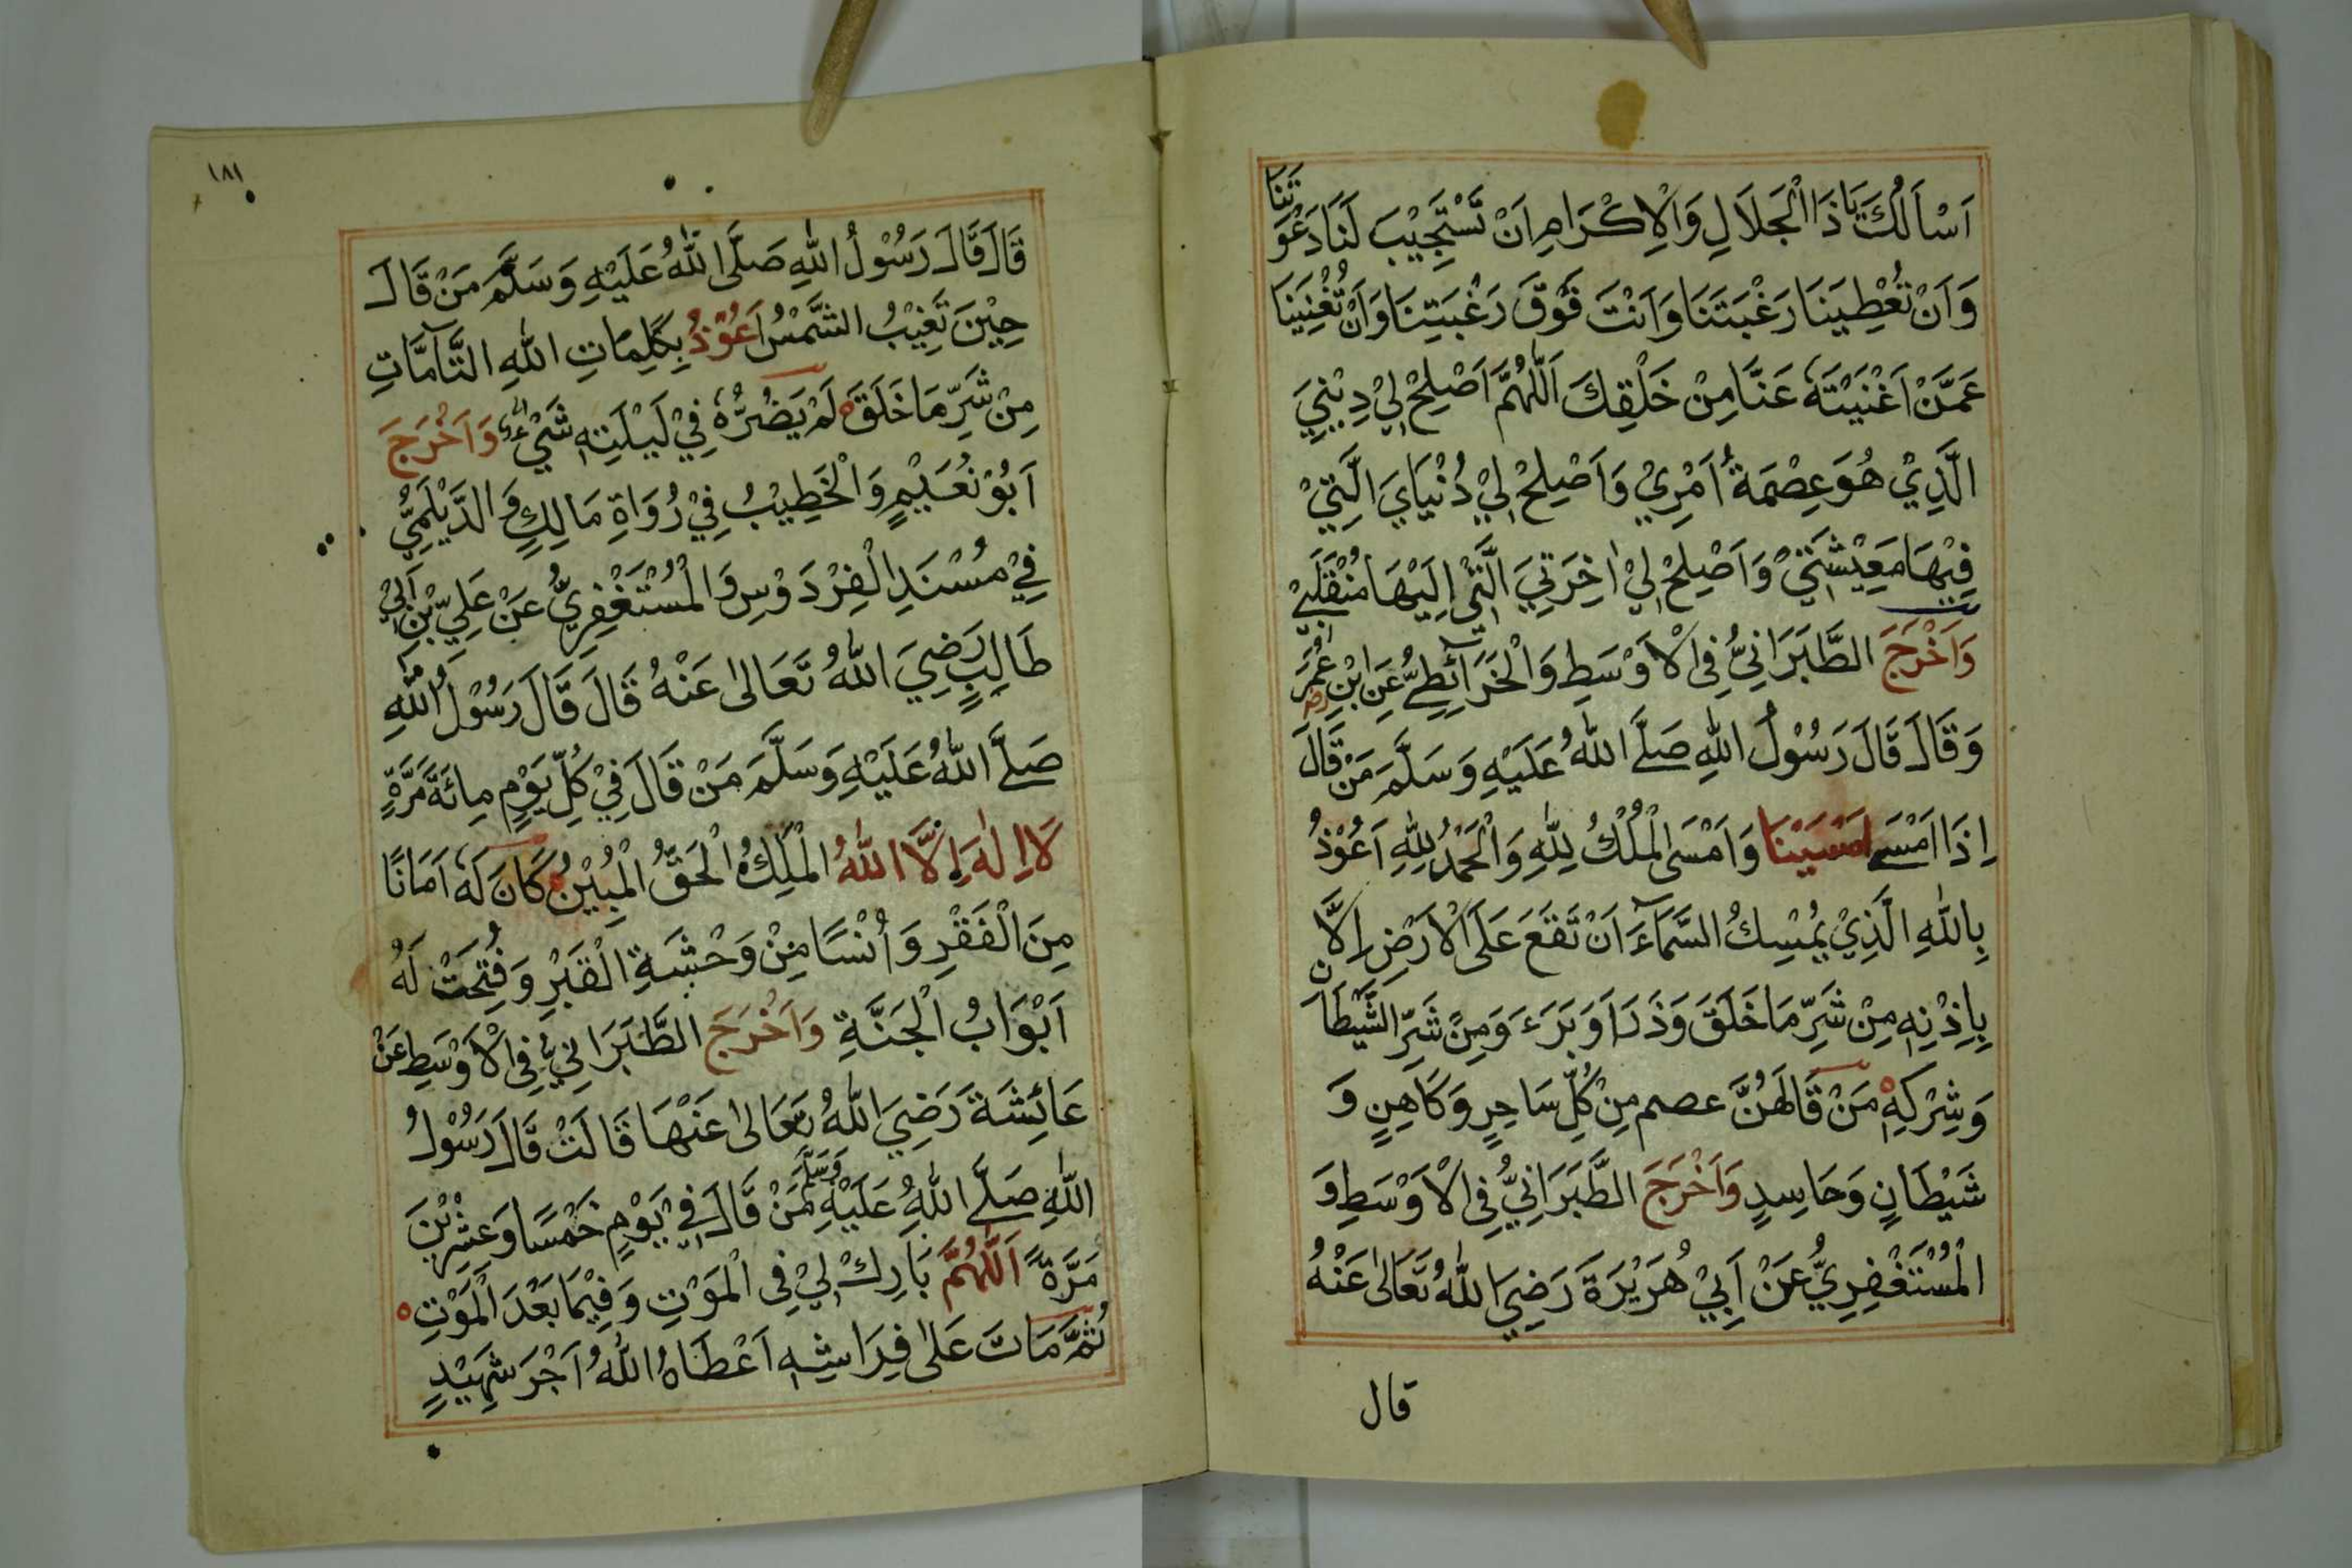 اَسْاَلُكَ يَا ذَا الْجَلَالِ وَالْاِكْرَامِ اَنْ تَسْتَجِيْبَ لَنَا دَعْوَتَنَا
وَاَنْ تُعْطِيَنَا رَغْبَتَنَا وَاَنْتَ فَوْقَ رَغْبَتِنَا وَاَنْ تُغْنِيَنَا
عَمَّنْ اَغْنَيْتَهٗ عَنَّا مِنْ خَلْقِكَ اَللّٰهُمَّ اَصْلِحْ لِيْ دِيْنِيَ
الَّذِيْ هُوَ عِصْمَةُ اَمْرِيْ وَاَصْلِحْ لِيْ دُنْيَايَ الَّتِيْ
فِيْهَا مَعِيْشَتِيْ وَاَصْلِحْ لِيْ اٰخِرَتِيَ الَّتِيْ اِلَيْهَا مُنْقَلَبِيْ
وَاَخْرَجَ الطَّبَرَانِيُّ فِي الْاَوْسَطِ وَالْخَرَائِطِيُّ عَنِ ابْنِ عُمَرَ
وَقَالَ قَالَ رَسُوْلُ اللّٰهِ صَلَّى اللّٰهُ عَلَيْهِ وَسَلَّمَ مَنْ قَالَ
اِذَا اَمْسَى اَمْسَيْنَا وَاَمْسَى الْمُلْكُ لِلّٰهِ وَالْحَمْدُ لِلّٰهِ اَعُوْذُ
بِاللّٰهِ الَّذِيْ يُمْسِكُ السَّمَآءَ اَنْ تَقَعَ عَلَى الْاَرْضِ اِلَّا
بِاِذْنِهٖ مِنْ شَرِّ مَا خَلَقَ وَذَرَاَ وَبَرَءَ وَمِنْ شَرِّ الشَّيْطَانِ
وَشِرْكِهٖ مَنْ قَالَهُنَّ عصم مِنْ كُلِّ سَاحِرٍ وَكَاهِنٍ وَ
شَيْطَانٍ وَحَاسِدٍ وَاَخْرَجَ الطَّبَرَانِيُّ فِي الْاَوْسَطِ وَ
الْمُسْتَغْفِرِيُّ عَنْ اَبِيْ هُرَيْرَةَ رَضِيَ اللّٰهُ تَعَالٰى عَنْهُ
قال
١٨١
قَالَ قَالَ رَسُوْلُ اللّٰهِ صَلَّى اللّٰهُ عَلَيْهِ وَسَلَّمَ مَنْ قَالَ
حِيْنَ تَغِيْبُ الشَّمْسُ اَعُوْذُ بِكَلِمَاتِ اللّٰهِ التَّآمَّاتِ
مِنْ شَرِّ مَا خَلَقَ لَمْ يَضُرُّهٗ فِيْ لَيْلَتِهٖ شَيْءٌ وَاَخْرَجَ
اَبُوْ نُعَيْمٍ وَالْخَطِيْبُ فِيْ رُوَاةِ مَالِكٍ وَالدَّيْلَمِيُّ
فِيْ مُسْنَدِ الْفِرْدَوْسِ وَالْمُسْتَغْفِرِيُّ عَنْ عَلِيِّ بْنِ اَبِيْ
طَالِبٍ رَضِيَ اللّٰهُ تَعَالٰى عَنْهُ قَالَ قَالَ رَسُوْلُ اللّٰهِ
صَلَّى اللّٰهُ عَلَيْهِ وَسَلَّمَ مَنْ قَالَ فِيْ كُلِّ يَوْمٍ مِائَةَ مَرَّةٍ
لَا اِلٰهَ اِلَّا اللّٰهُ الْمَلِكُ الْحَقُّ الْمُبِيْنُ كَانَ لَهٗ اَمَانًا
مِنَ الْفَقْرِ وَاُنْسًا مِنْ وَحْشَةِ الْقَبْرِ وَفُتِحَتْ لَهٗ
اَبْوَابُ الْجَنَّةِ وَاَخْرَجَ الطَّبَرَانِيُّ فِي الْاَوْسَطِ عَنْ
عَائِشَةَ رَضِيَ اللّٰهُ تَعَالٰى عَنْهَا قَالَتْ قَالَ رَسُوْلُ
اللّٰهِ صَلَّى اللّٰهُ عَلَيْهِ وَسَلَّمَ مَنْ قَالَ فِيْ يَوْمٍ خَمْسًا وَعِشْرِيْنَ
مَرَّةً اَللّٰهُمَّ بَارِكْ لِيْ فِي الْمَوْتِ وَفِيْمَا بَعْدَ الْمَوْتِ
ثُمَّ مَاتَ عَلٰى فِرَاشِهٖ اَعْطَاهُ اللّٰهُ اَجْرَ شَهِيْدٍ